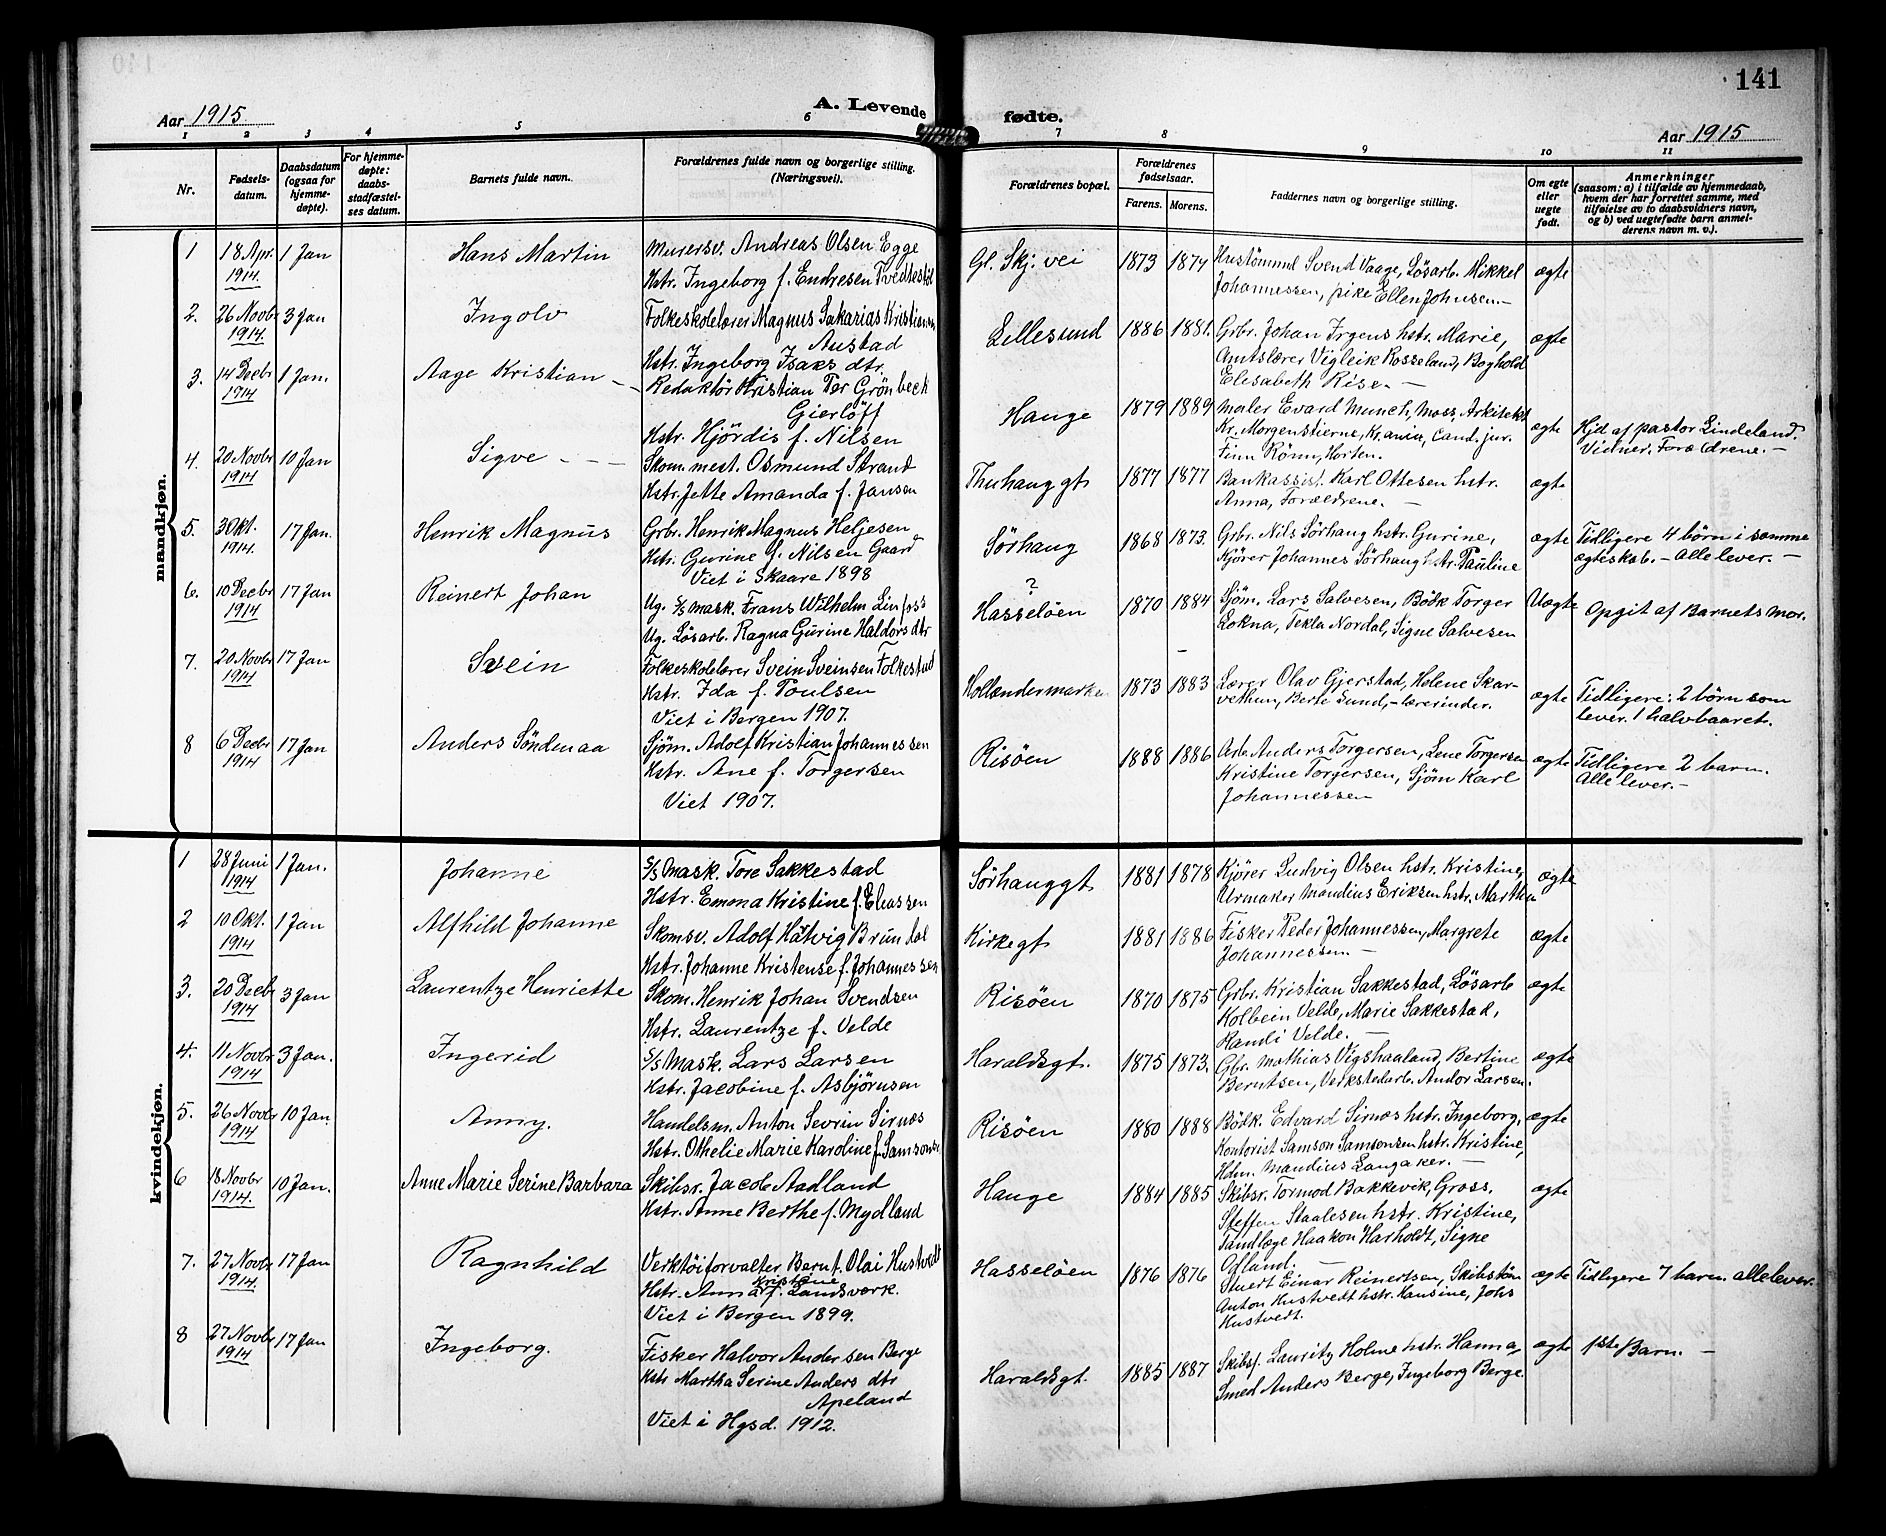 141
Aar 1915.
A. Levende
fødte.
Aar 1915
1 2 3 4 5 6 7 8 9 10 11
Nr.
Fødsels-
datum.
Daabsdatum
(ogsaa for
hjemme-
døpte).
For hjemme-
døpte:
daabs-
stadfæstel-
ses datum.
Barnets fulde navn.
Forældrenes fulde navn og borgerlige stilling.
(Næringsvei).
Forældrenes bopæl.
Forældrenes
fødselsaar.
Farens. Morens.
Faddernes navn og borgerlige stilling.
Om egte
eller
uegte
født.
Anmerkninger
(saasom: a) i tilfælde av hjemmedaab,
hvem der har forrettet samme, med
tilføielse av to daabsvidners navn,
og b) ved uegtefødte barn anmel-
derens navn m. v.).
mandkjøn.
1 18 Apr. 1914. 1 Jan Hans Martin
Murersv. Andreas Olsen Egge
Hstr. Ingeborg f. Endresen Tvedtestöl
Gl. Skj. vei 1873 1874
Hustømml Svend Vaage, Løsarb. Mikkel
Johannessen, pike Ellen Johnsen. —
ægte
2. 26 Novbr 1914. 3 Jan Ingolv
Folkeskolelærer Magnus Sakarias Kristiansen
Austad
Hstr. Ingeborg Isaks dtr.
Lillesund 1886 1881.
Grbr. Johan Irgens hstr. Marie,
Amtslærer Vigleik Rosseland, Boghold
Elisabeth Rise. —
ægte
3. 14 Decbr 1914 1 Jan. Aage Kristian —
Redaktör Kristian Per Grönbeck
Gierlöff
Hstr. Hjördis f. Nilsen
Hauge 1879 1889
Maler Evard Munch, Moss, Arkitekt
Kr. Morgenstierne, Kr.ania, Cand. jur.
Finn Rönn, Horten.
ægte
Hjd af pastor Lindeland.
Vidner: Forældrene. —
4. 20 Novbr 1914 10 Jan Sigve — — —
Skom. mest. Osmund Strand
Hstr. Jette Amanda f. Jansen
Thuhauggt 1877 1877
Bankassist. Karl Ottesen hstr.
Anna, Forældrene. —
ægte
5. 3 Okt. 1914. 17 Jan. Henrik Magnus
Grbr. Henrik Magnus Heljesen
Hstr. Gurine f. Nilsen Gaard
Viet i Skaare 1898
Sørhaug 1868 1873.
Grbr. Nils Sørhaug hstr. Gurine,
Kjører Johannes Sørhaug hstr. Pauline
ægte
Tidligere 4 börn i samme
ægteskab. — Alle lever. —
6. 10 Decbr 1914 17 Jan Reinert Johan
Ug. S/S mask. Frans Wilhelm Linfoss
Ug. Løsarb. Ragna Gurine Haldors dtr
?
Hasseløen 1870 1884
Sjöm. Lars Salvesen, Bödk Torger
Lokna, Tekla Nordal, Signe Salvesen
Uægte
Opgit af Barnets mor.
7. 20 Novbr 1914 17 Jan Svein
Folkeskolelærer Svein Sveinsen Folkestad
Hstr. Ida f. Poulsen
Viet i Bergen 1907.
Hollændermarken 1873 1883
Lærer Olav Gjerstad, Helene Skar-
vethun, Berte Sund, — lærerinder.
ægte
Tidligere: 2 börn som
lever. 1 halvbaaret.
8 6 Decbr 1914 17 Jan Anders Söndenaa
Sjöm. Adolf Kristian Johannessen
Hstr. Ane f. Torgersen
Viet 1907.
Risöen 1888 1886
Arb. Anders Torgersen, Lene Torgersen
Kristine Torgersen, Sjöm Karl
Johannessen
ægte
Tidligere 2 barn.
Alle lever. —
kvindekjøn.
1 28 Juni 1914 1 Jan. Johanne
S/S Mask. Tore Sakkestad
Hstr. Emma Kristine f. Eliassen
Sörhauggt 1881 1878
Kjører Ludvig Olsen hstr. Kristine,
Urmaker Mandius Eriksen hstr. Martha
ægte
2 10 Okt. 1914 1 Jan Alfhild Johanne
Skomsv. Adolf Hartvig Brundal
Hstr. Johanne Kristense f. Johannessen
Kirkegt 1881 1886
Fisker Peder Johannessen, Margrete
Johannessen. —
ægte
3. 20 Decbr 1914 3 Jan Laurentze Henriette
Skom. Henrik Johan Svendsen
Hstr. Laurentze f. Velde
Risöen 1870 1875
Grbr. Kristian Sakkestad, Lösarb
Kolbein Velde, Marie Sakkestad,
Handi Velde. —
ægte
4. 11 Novbr 1914 3 Jan. Ingerid
S/S Mask. Lars Larsen
Hstr. Jacobine f. Asbjörnsen
Haraldsgt. 1875 1873.
Gbr. Mathias Vigshaaland, Bertine
Berntsen, Verkstedarb. Andor Larsen.
ægte
5. 26 Novbr 1914 10 Jan. Anny.
Handelsm. Anton Sevrin Sirnæs
Hstr. Othelie Marie Karoline f. Samsonsen
Risöen 1880 1888
Bödk. Edvard Sirnæs hstr. Ingeborg,
Kontorist Samson Samsonsen hstr. Kristine,
Hdm. Mandius Langaker. —
ægte
6 18 Novbr 1914. 10 Jan. Anne Marie Serine Barbara
Skibsr. Jacob Aadland
Hstr. Anne Berthe f. Mydland
Hauge 1884 1885
Skibsr. Tormod Bakkevik, Gross.
Steffen Staalesen hstr. Kristine,
Tandlæge Haakon Harholdt, Signe
Ofland. —
ægte
7. 27 Novbr 1914. 17 Jan Ragnhild
Verktöiforvalter Bernt Olai Hustvedt
Kristine
Hstr. Anna f. Landsverk.
Viet i Bergen 1899.
Hasselöen 1876 1876
Stuert Einar Reinertsen, Skibstöm
Anton Hustvedt hstr. Hansine, Johs
Hustvedt.
ægte
Tidligere 7 barn. alle lever.
8 27 Novbr 1914 17 Jan Ingeborg.
Fisker Halvor Andersen Berge
Hstr Martha Serine Anders dtr
Apeland
Viet i Hgsd. 1912.
Haraldsgt. 1885 1887
Skibsf. Lauritz Holme hstr. Hanna,
Smed Anders Berge, Ingeborg Berge
ægte
1ste Barn. —